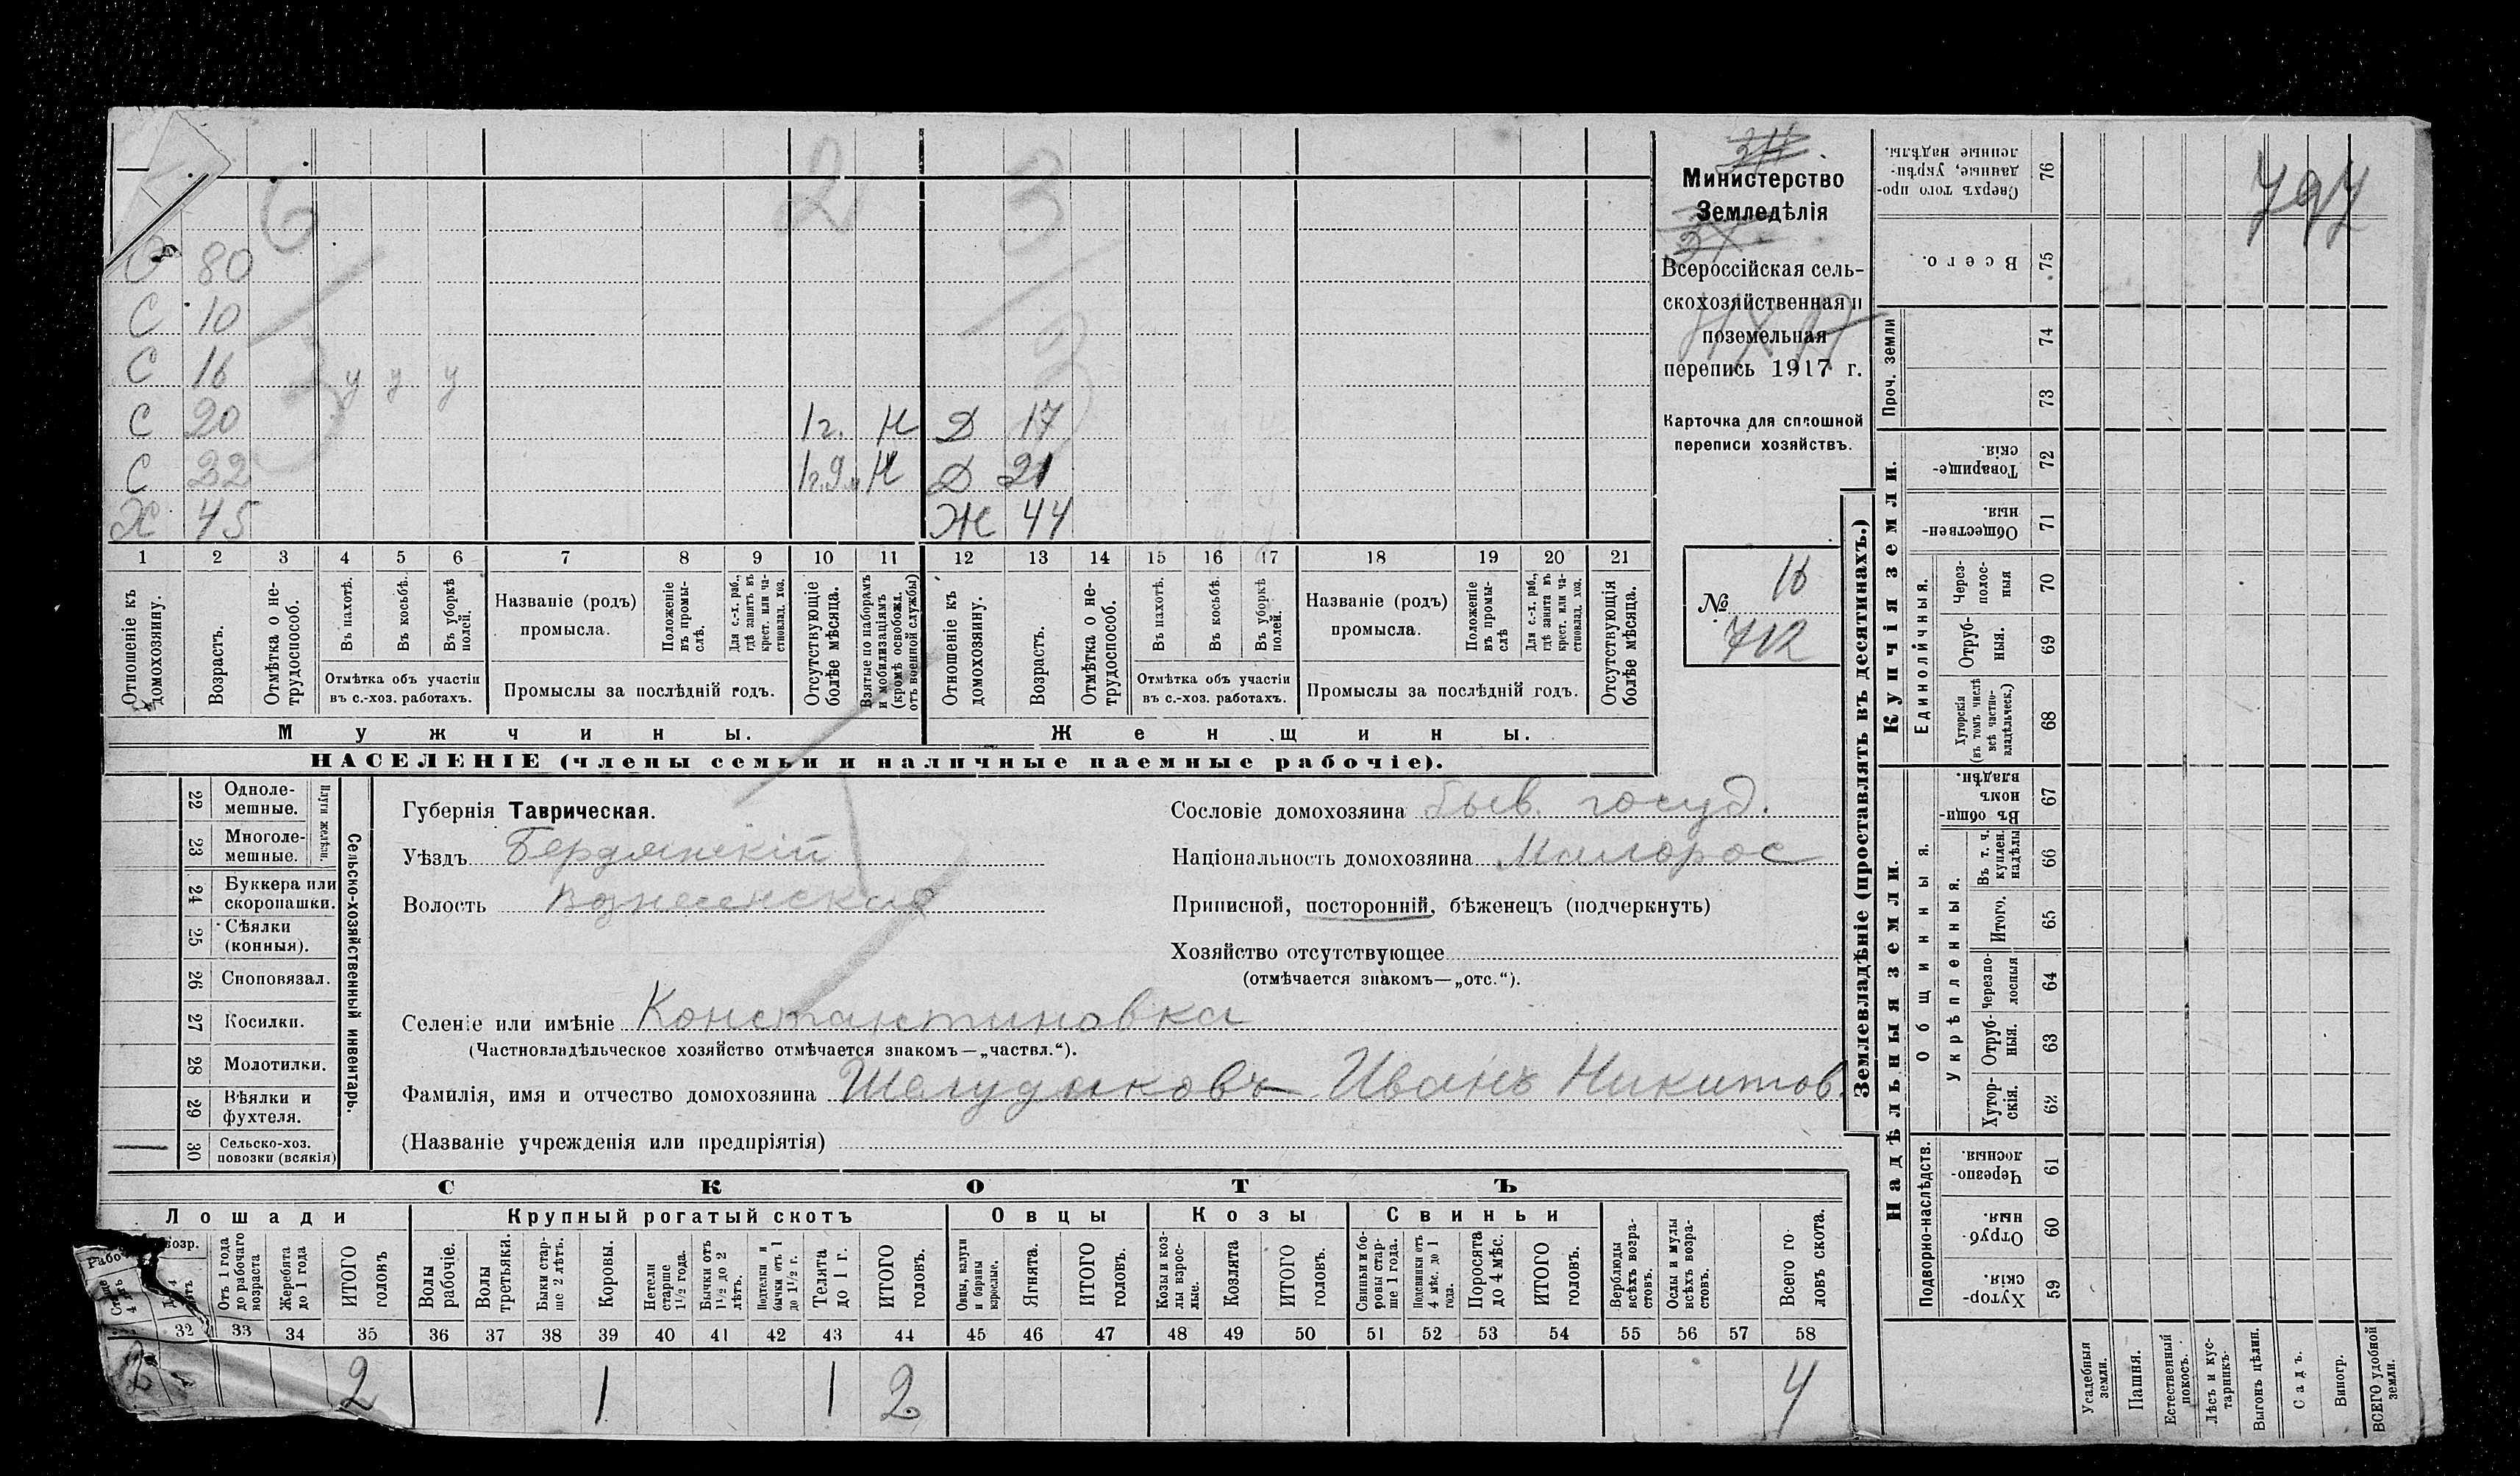 6 2 3
О 80
С 10
С 16 у у у
С 20 1 г. М Д 17
С 22 М Д 21
Х 45 Ж 44
1 2 3 4 5 6 7 8 9 10 11 12 13 14 15 16 17 18 19 20 21
Отношеніе къ домохозяину.
Возрастъ.
Отмѣтка о не-
трудоспособ.
Въ пахотѣ.
Въ косьбѣ.
Въ уборкѣ полей.
Отмѣтка объ участіи
въ с.-хоз. работахъ.
Названіе (родъ)
промысла.
Положеніе въ промы-
слѣ.
Для с.-х. раб., гдѣ занятъ въ крест. или ча-
стновлад. хоз.
Промыслы за послѣдній годъ.
Отсутствующіе
болѣе мѣсяца.
Взятые по наборамъ
и мобилизаціямъ
(кромѣ освобожд.
отъ военной службы)
Отношеніе къ
домохозяину.
Возрастъ.
Отмѣтка о не-
трудоспособ.
Въ пахотѣ.
Въ косьбѣ.
Въ уборкѣ полей.
Отмѣтка объ участіи
въ с.-хоз. работахъ.
Названіе (родъ)
промысла.
Положеніе
въ промы-
слѣ
Для с.-х. раб.,
гдѣ занята въ
крест. или ча-
стновлад. хоз.
Промыслы за послѣдній годъ.
Отсутствующія
болѣе мѣсяца.
Мужчины.
Женщины.
НАСЕЛЕНІЕ (члены семьи и наличные наемные рабочіе).
Министерство
Земледѣлія
Всероссійская сель-
скохозяйственная и
поземельная
перепись 1917 г.
Карточка для сплошной
переписи хозяйствъ.
№ 16
712
22 Одноле-
мешные.
23 Многоле-
мешные.
Плуги желѣзн.
24 Буккера или
скоропашки.
25 Сѣялки
(конныя).
26 Сноповязал.
27 Косилки.
28 Молотилки.
29 Вѣялки и
фухтеля.
30 Сельско-хоз.
повозки (всякія)
Сельско-хозяйственный инвентарь.
Губернія Таврическая.
Уѣздъ Бердянскій
Волость Вознесенская
Сословіе домохозяина быв. госуд.
Національность домохозяина Малорос
Приписной, посторонній, бѣженецъ (подчеркнуть)
Хозяйство отсутствующее
(отмѣчается знакомъ—„отс.“).
Селеніе или имѣніе Константиновка
(Частновладѣльческое хозяйство отмѣчается знакомъ—„частвл.“).
Фамилія, имя и отчество домохозяина Шелудяковъ Иванъ Никитов.
(Названіе учрежденія или предпріятія)
СКОТЪ
Лошади
Крупный рогатый скотъ
Овцы
Козы
Свиньи
Отъ 1 года
до рабочаго
возраста
Жеребята
до 1 года
ИТОГО
головъ
Волы
рабочіе.
Волы
третьяки.
Быки стар-
ше 2 лѣтъ.
Коровы.
Нетели
старше
1 1/2 года.
Бычки отъ
1 1/2 до 2
лѣтъ.
Подтелки и
бычки отъ 1
до 1 1/2 г.
Телята
до 1 г.
ИТОГО
головъ.
Овцы, валухи
и бараны
взрослые.
Ягнята.
ИТОГО
головъ.
Козы и коз-
лы взрос-
лые.
Козлята
ИТОГО
головъ.
Свиньи и бо-
ровы стар-
ше 1 года.
Подсвинки отъ
4 мѣс. до 1
года.
Поросята
до 4 мѣс.
ИТОГО
головъ.
Верблюды
всѣхъ возра-
стовъ.
Ослы и мулы
всѣхъ возра-
стовъ.
Всего го-
ловъ скота.
32 33 34 35 36 37 38 39 40 41 42 43 44 45 46 47 48 49 50 51 52 53 54 55 56 57 58
2 2 1 1 2 4
Землевладѣніе (проставлять въ десятинахъ.)
Надѣльныя земли.
Купчія земли.
Проч. земли
Подворно-наслѣдств.
Общинныя.
Укрѣпленныя.
Единоличныя.
797
76 Сверхъ того про-
данные, укрѣп-
ленные надѣлы.
75 Всего.
74
73
72 Товарище-
скія.
71 Обществен-
ныя.
70 Через-
полос-
ныя
69 Отруб-
ныя.
68 Хуторскія
(въ томъ числѣ
всѣ частно-
владѣльческ.)
67 Въ общин-
номъ
владѣн.
66 Въ т. ч.
куплен.
надѣлы
65 Итого.
64 Черезпо-
лосныя
63 Отруб-
ныя.
62 Хутор-
скія.
61 Черезпо-
лосныя.
60 Отруб-
ныя.
59 Хутор-
скія.
Усадебныя
земли.
Пашня.
Естественный
покосъ.
Лѣсъ и кус-
тарникъ.
Выгонъ цѣлин.
Садъ.
Виногр.
ВСЕГО удобной
земли.